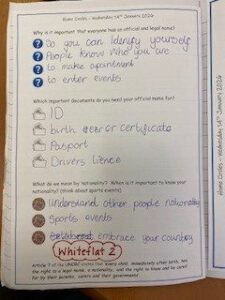 Home Circles - Wednesday 14th January 2026
Why is it important that everyone has an official and legal name?
So you can Identify yourself
People know who you are
to make apointment
to enter events
Which important documents do you need your official name for?
ID
birth certificate
Pasport
Drivers licence
What do we mean by nationality? When is it important to know your nationality? (think about sports events)
Understand other people nationality
Sports events
embrace your country
Whiteflat 2
Article 7 of the UNCRC states that every child, immediately after birth, has
the right to a legal name, a nationality, and the right to know and be cared
for by their parents, carers and governments
Home Circles - Wednesday 14th January 2026